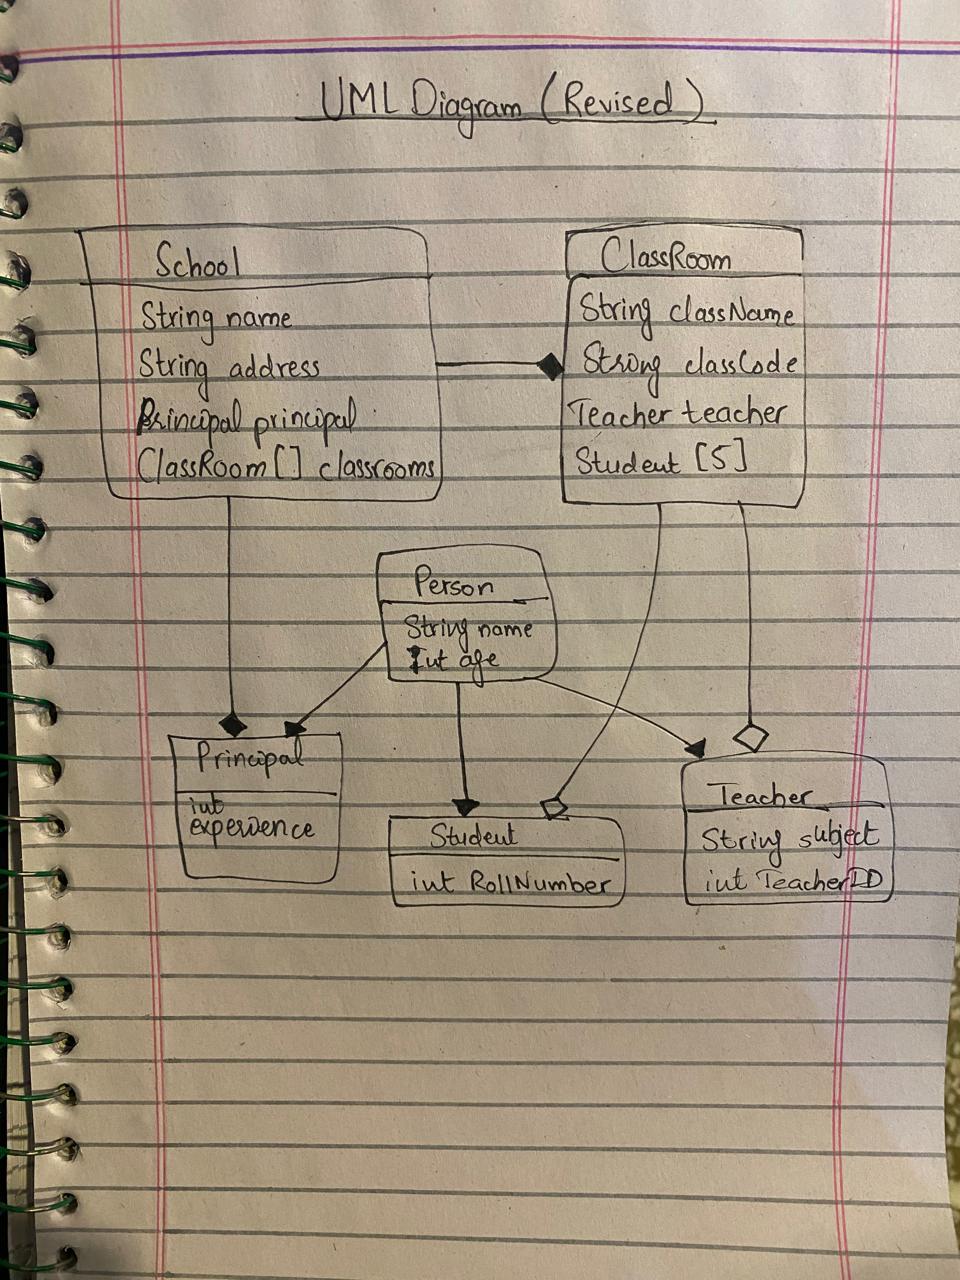 UML Diagram (Revised)
School
String name
String address
Principal principal
ClassRoom [] classrooms
ClassRoom
String className
String classCode
Teacher teacher
Student [5]
Person
String name
Int age
Principal
int
experience
Student
int RollNumber
Teacher
String subject
int TeacherID